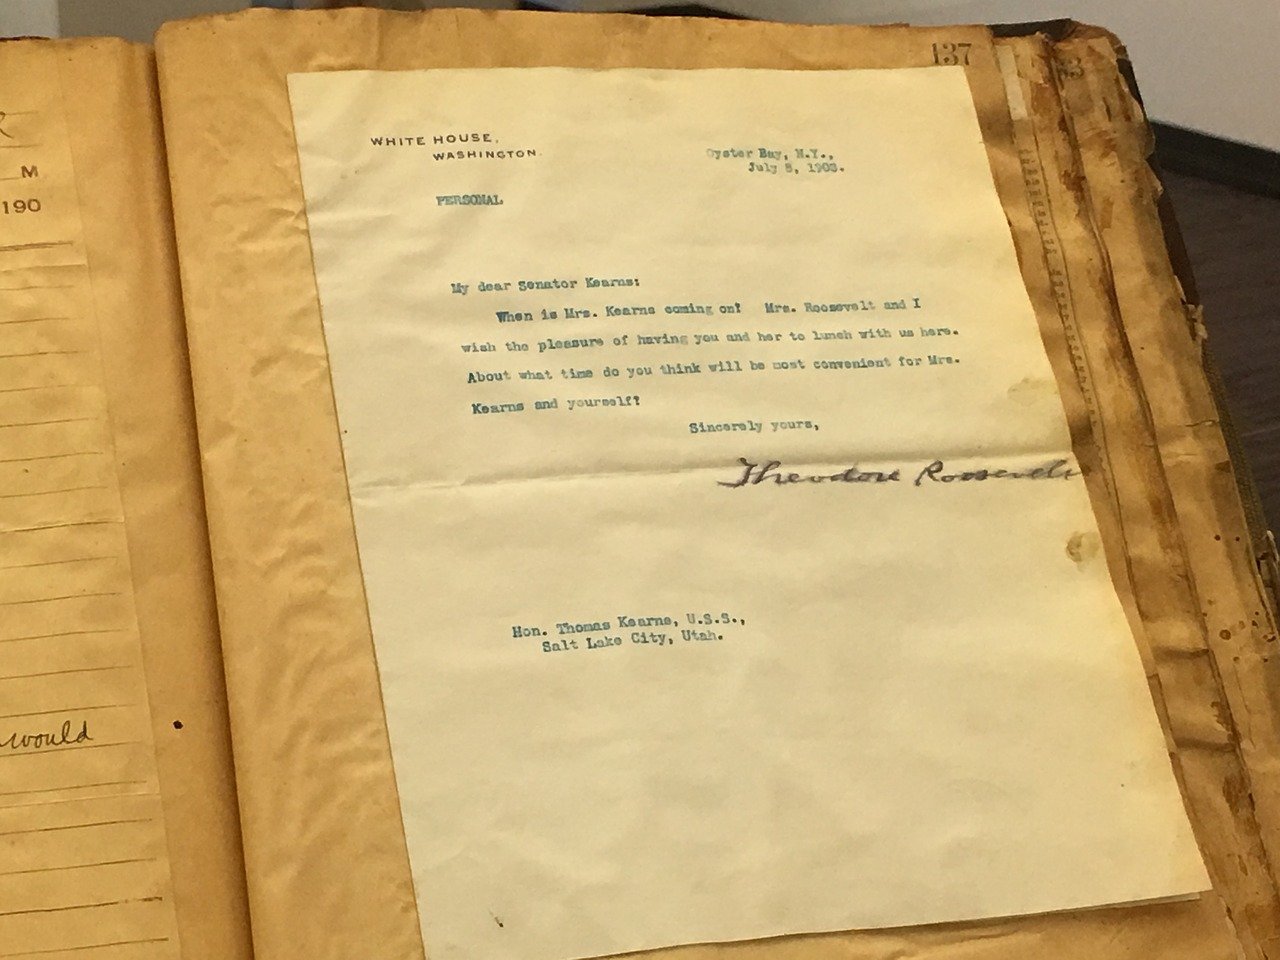 137
M
190
would
WHITE HOUSE,
WASHINGTON.
Oyster Bay, N.Y.,
July 8, 1903.
PERSONAL
My dear Senator Kearns:
When is Mrs. Kearns coming on? Mrs. Roosevelt and I
wish the pleasure of having you and her to lunch with us here.
About what time do you think will be most convenient for Mrs.
Kearns and yourself?
Sincerely yours,
Theodore Roosevelt
Hon. Thomas Kearns, U.S.S.,
Salt Lake City, Utah.